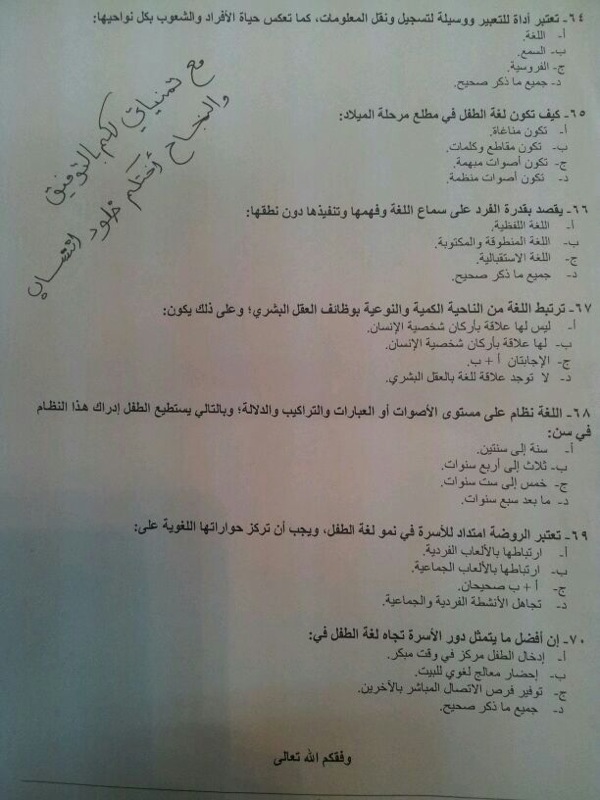 ٦٤- تعتبر أداة للتعبير ووسيلة لتسجيل ونقل المعلومات، كما تعكس حياة الأفراد والشعوب بكل نواحيها:
أ- اللغة.
ب- السمع.
ج- الفروسية.
د- جميع ما ذكر صحيح.
مع تمنياتي لكم بالتوفيق
والنجاح أختكم خلود
٦٥- كيف تكون لغة الطفل في مطلع مرحلة الميلاد:
أ- تكون مناغاة.
ب- تكون مقاطع وكلمات.
ج- تكون أصوات مبهمة.
د- تكون أصوات منظمة.
٦٦- يقصد بقدرة الفرد على سماع اللغة وفهمها وتنفيذها دون نطقها:
أ- اللغة اللفظية.
ب- اللغة المنطوقة والمكتوبة.
ج- اللغة الاستقبالية.
د- جميع ما ذكر صحيح.
٦٧- ترتبط اللغة من الناحية الكمية والنوعية بوظائف العقل البشري؛ وعلى ذلك يكون:
أ- ليس لها علاقة بأركان شخصية الإنسان.
ب- لها علاقة بأركان شخصية الإنسان.
ج- الإجابتان أ + ب.
د- لا توجد علاقة للغة بالعقل البشري.
٦٨- اللغة نظام على مستوى الأصوات أو العبارات والتراكيب والدلالة؛ وبالتالي يستطيع الطفل إدراك هذا النظام
في سن:
أ- سنة إلى سنتين.
ب- ثلاث إلى أربع سنوات.
ج- خمس إلى ست سنوات.
د- ما بعد سبع سنوات.
٦٩- تعتبر الروضة امتداد للأسرة في نمو لغة الطفل، ويجب أن تركز حواراتها اللغوية على:
أ- ارتباطها بالألعاب الفردية.
ب- ارتباطها بالألعاب الجماعية.
ج- أ + ب صحيحان.
د- تجاهل الأنشطة الفردية والجماعية.
٧٠- إن أفضل ما يتمثل دور الأسرة تجاه لغة الطفل في:
أ- إدخال الطفل مركز في وقت مبكر.
ب- إحضار معالج لغوي للبيت.
ج- توفير فرص الاتصال المباشر بالآخرين.
د- جميع ما ذكر صحيح.
وفقكم الله تعالى